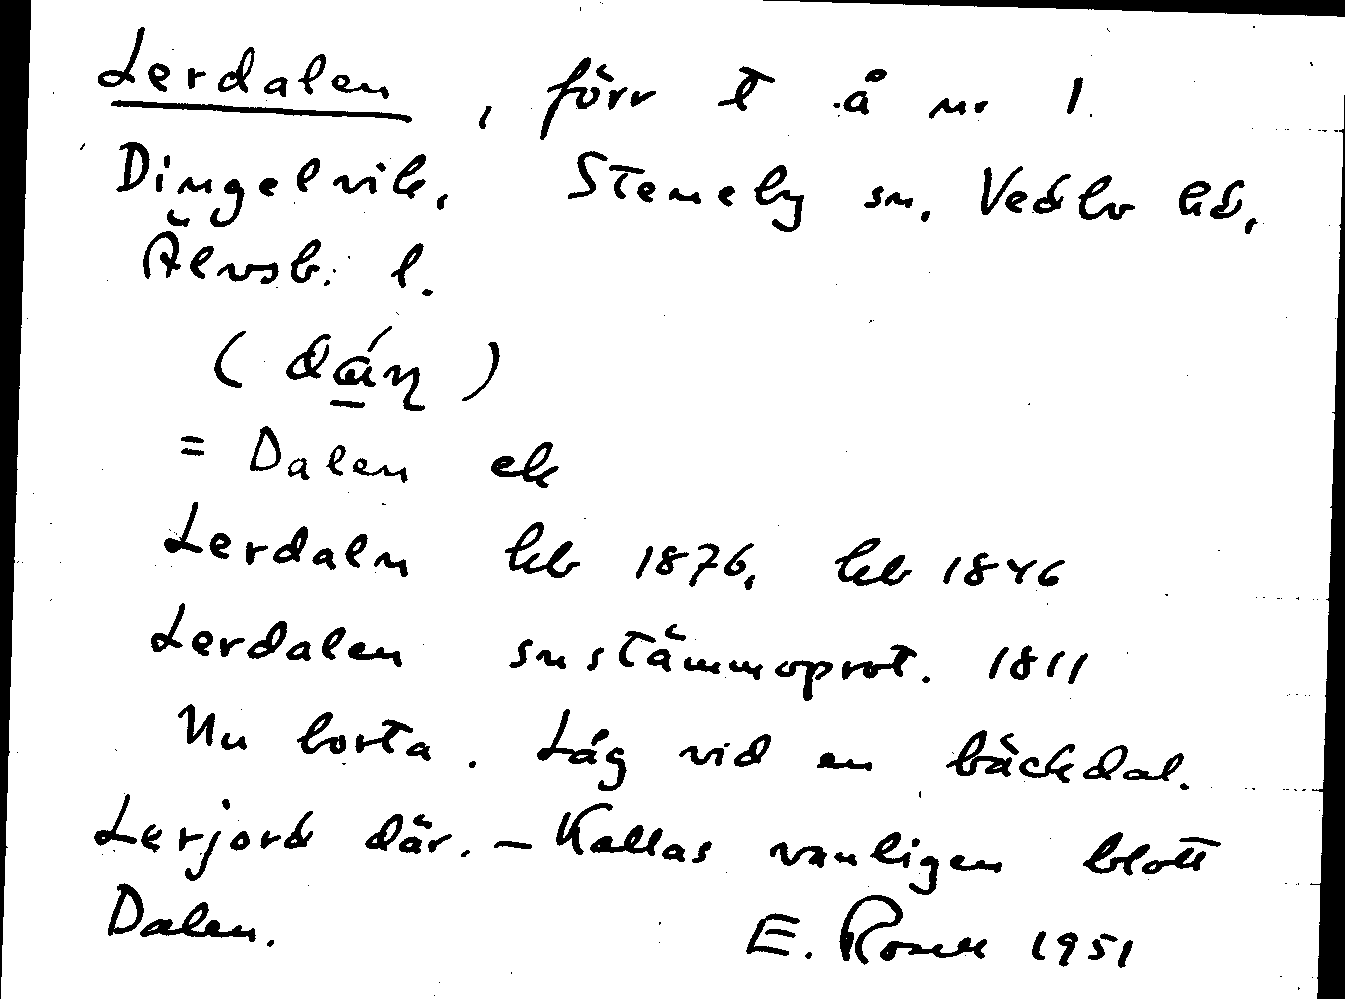 Lerdalen, förr t å nr 1
Dingelvik, Steneby sn, Vedbo hd,
Älvsb. l.
(dán)
= Dalen ek
Lerdaln kb 1876, kb 1846
Lerdalen snstämmoprot. 1811
Nu borta. Låg vid en bäckdal.
Lerjord där. – Kallas vanligen blott
Dalen. E. Rosell 1951